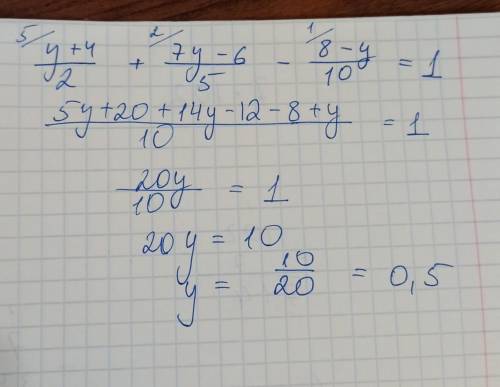 5/ (y+4)/2 + 2/ (7y-6)/5 - 1/ (8-y)/10 = 1
(5y+20+14y-12-8+y)/10 = 1
20y/10 = 1
20y = 10
y = 10/20 = 0,5